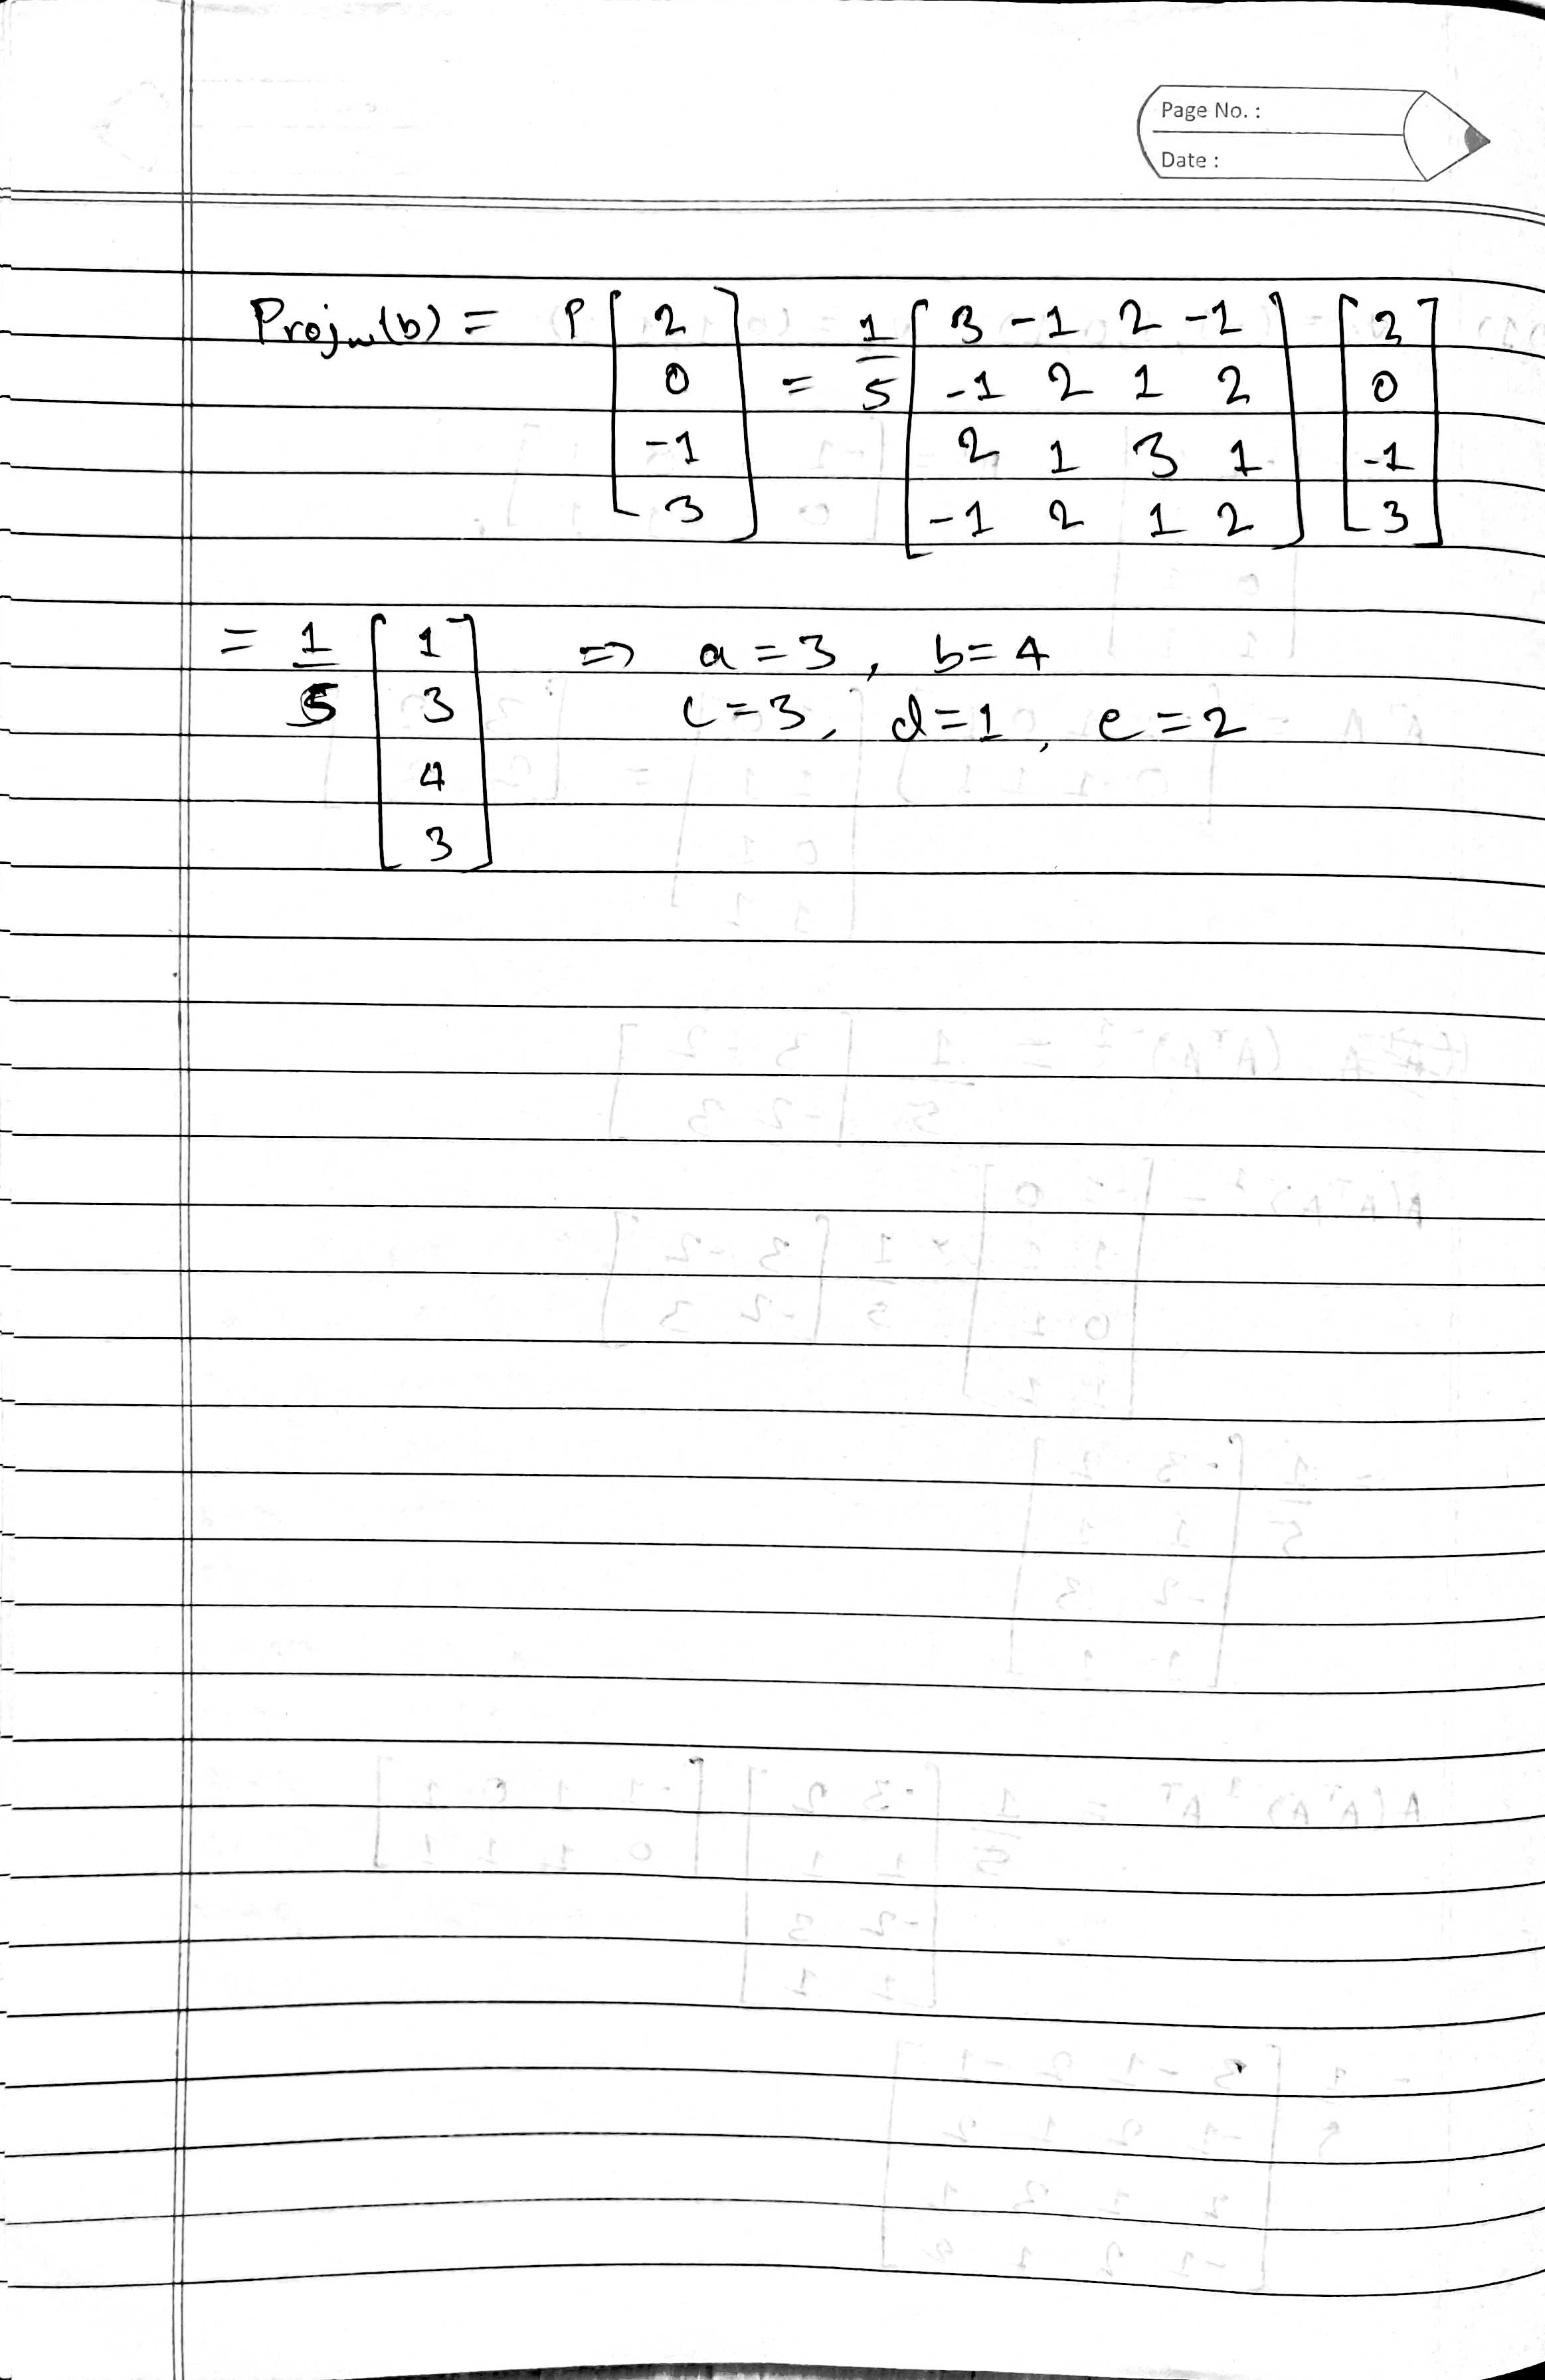 Page No. :
Date :
Proj_w(b) = P [2 0 -1 3] = 1/5 [3 -1 2 -1; -1 2 1 2; 2 1 3 1; -1 2 1 2] [2 0 -1 3]
= 1/5 [1 3 4 3] => a=3, b=4
c=3, d=1, e=2